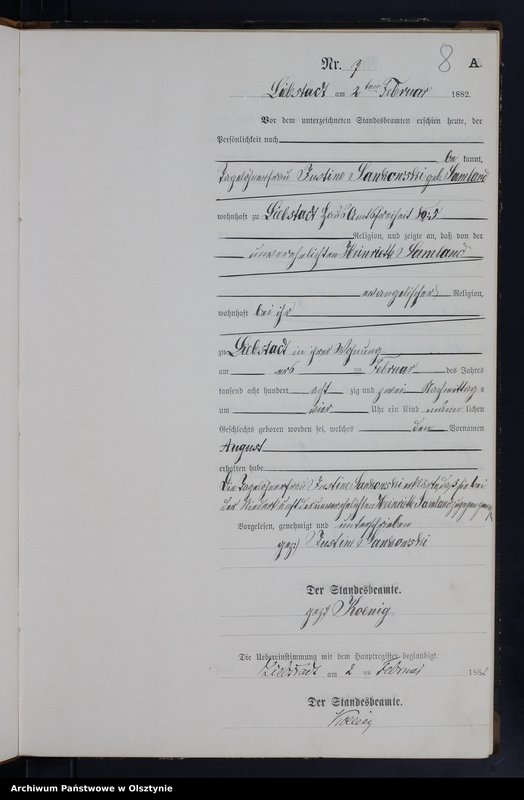 8
Nr. 9 A.
Liebstadt am 2 ten Februar 1882.
Vor dem unterzeichneten Standesbeamten erschien heute, der
Persönlichkeit nach
be kannt,
Tagelöhnerfrau Justine geb. Samland
wohnhaft zu Liebstadt Haus Amtsfreiheit No 5
Religion, und zeigte an, daß von der
unverehelichten Heinriette Samland
evangelischer Religion,
wohnhaft bei ihr
zu Liebstadt in ihrer Wohnung
am ersten Februar des Jahres
tausend acht hundert acht zig und zwei Nachmittag s
um vier Uhr ein Kind männ lichen
Geschlechts geboren worden sei, welches den Vornamen
August
erhalten habe
Die Tagelöhnerfrau Justine erklärte daß sie bei
der Niederkunft der unverehelichten Heinriette Samland zugegen gewesen
Vorgelesen, genehmigt und unterschrieben
gez. Justine
Der Standesbeamte.
gez. Koenig
Die Uebereinstimmung mit dem Hauptregister beglaubigt.
Liebstadt am 2 ten Februar 1882
Der Standesbeamte.
Koenig
Archiwum Państwowe w Olsztynie